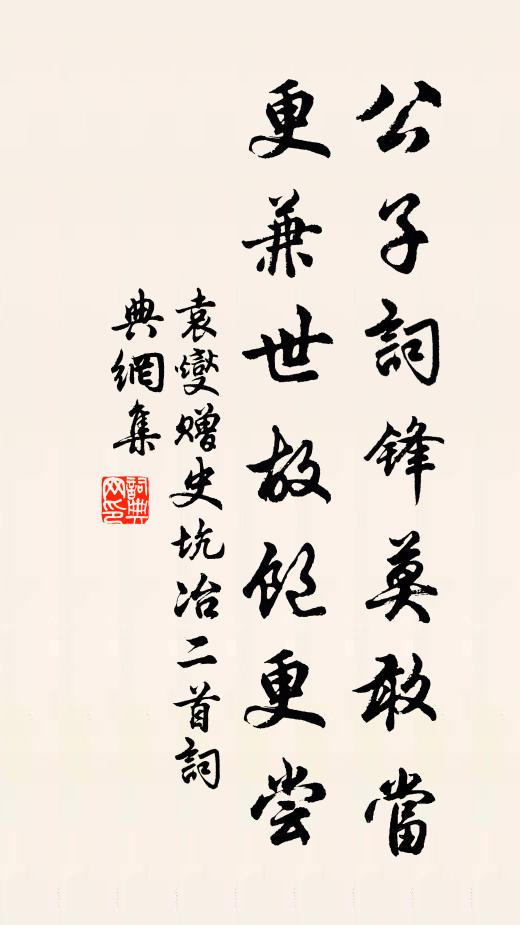 公子詞锋莫敢當
更兼世故飽更尝
袁燮赠史坑冶二首詞
典網集
詞典网印